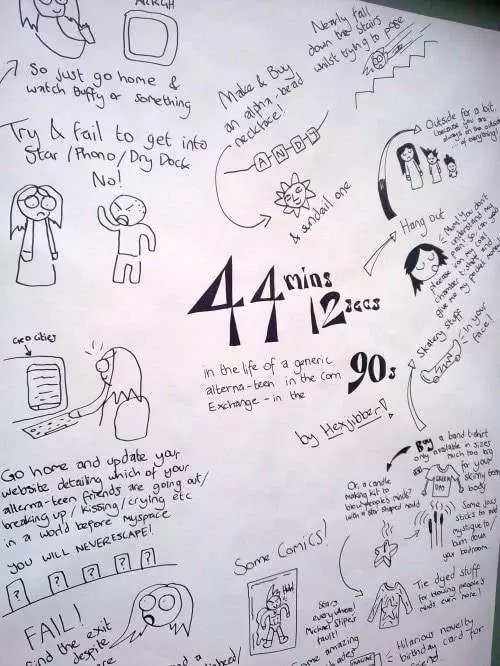 ARRGH
So just go home &
watch Buffy or something
Try & fail to get into
Star / Phono / Dry Dock
No!
Make & Buy
an alpha-bead
necklace!
ANDY
& sundail one
Nearly fall
down the stairs
whilst trying to pose
Outside for a bit.
(because you are
always on the outside
of everything)
Hang out
Mum! you don't
understand my
pain! So can you
give me my pocket money
44 mins
12 secs
in the life of a generic
alterna-teen in the Corn
Exchange - in the
90s
by Hexjibber!
Skatery stuff
In your
face!
Geocities
Go home and update your
website detailing which of your
alterna-teen friends are going out/
breaking up / kissing / crying etc
in a world before myspace
YOU WILL NEVER ESCAPE!
? ? ? ? ?
FAIL!
find the exit
despite
Buy a band t-shirt
only available in sizes
much too big
for your
skinny teen
body
GREEN
DAY
Or, a candle
making kit to
blow people's minds!
with a star shaped mould
Some joss
sticks to add
mystique to/
burn down
your bedroom
Tie dyed stuff
for blowing people's
minds even more!
Some Comics!
Stars
everywhere!
Michael Stipe's
fault!
amazing
Hilarious novelty
birthday card for